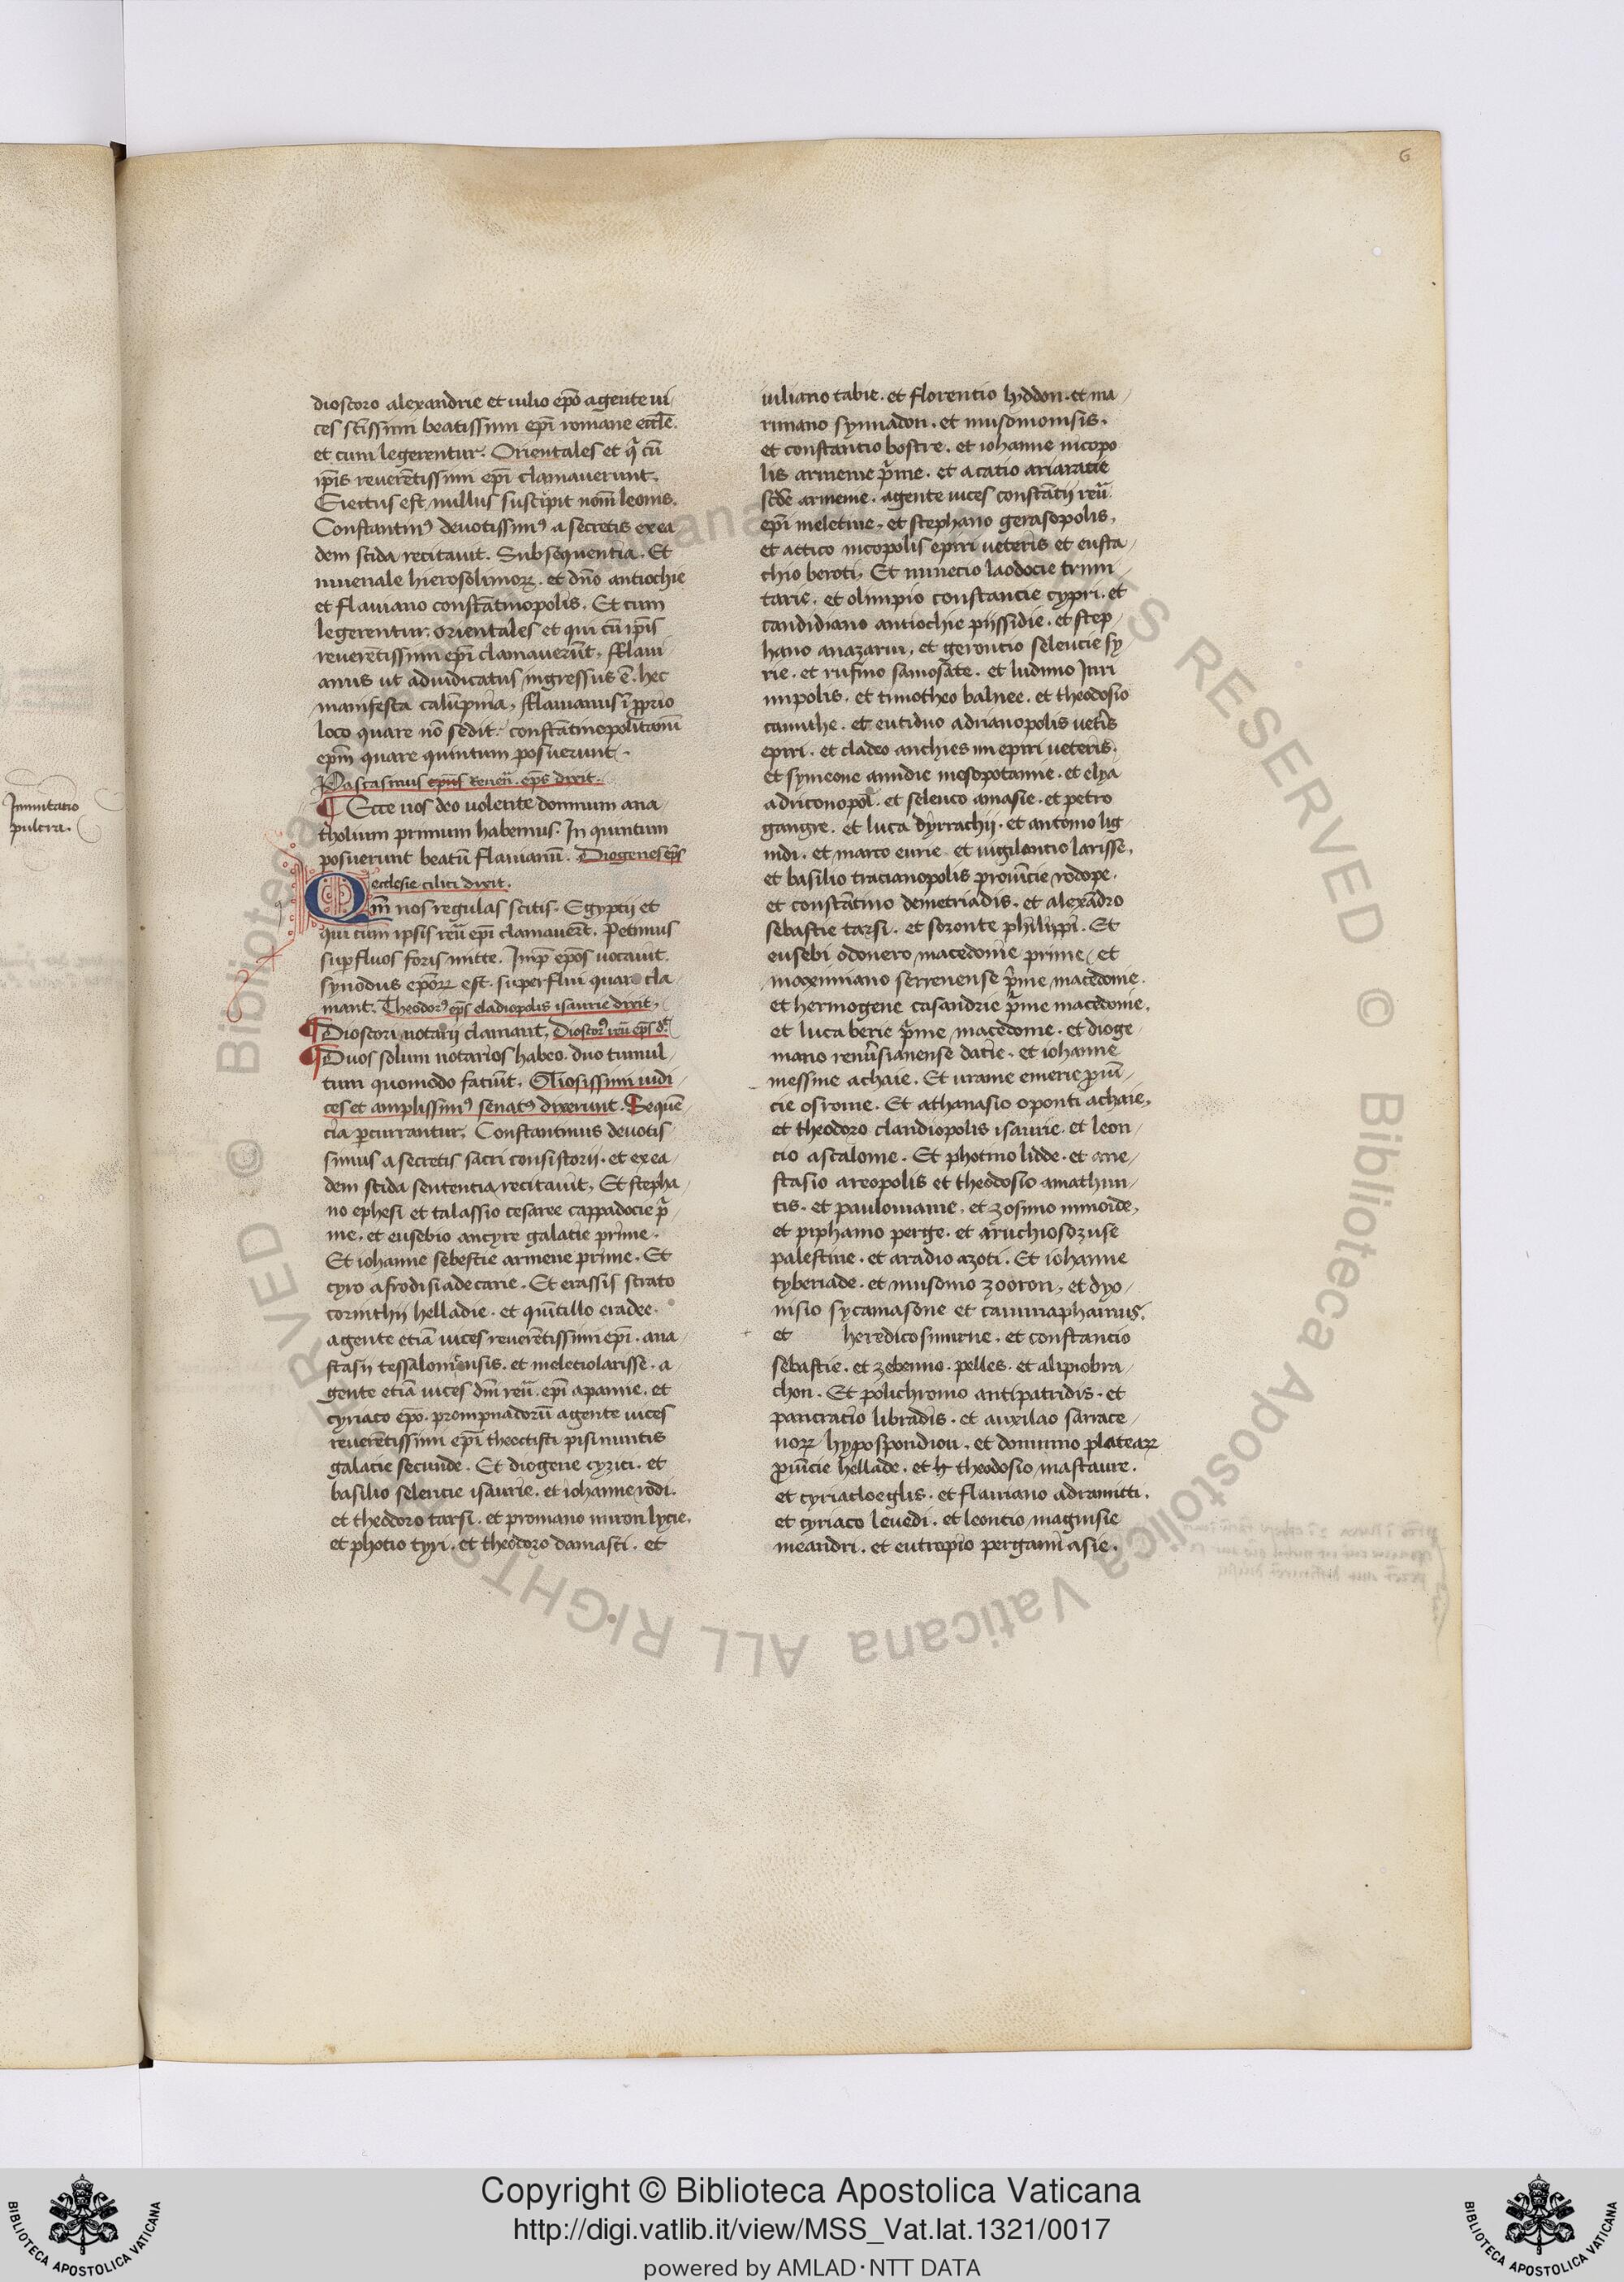 6
dioscoro alexandrie et iulio ep̄o agente ui/
ces sc̄issimi beatissimi ep̄i romane eccl̄e.
et cum legerentur. Orientales et q̄ cū
ip̄is reuerētissimi ep̄i clamauerunt.
Eiectus est nullus suscipit nom̄ leonis.
Constantin9 deuotissim9 a secretis ex ea
dem scida recitauit. Subsequentia. Et
iuuenale hierosolimoꝝ. et dn̄o antiochie
et flauiano constātinopolis. Et cum
legerentur. orientales et qui cū ip̄is
reuerētissimi ep̄i clamauerūt. fflaui
anus ut adiudicatus ingressus ē. hec
manifesta calūpnia. fflauianus ī ꝓprio
loco quare nō sedit. constātinopolitanū
ep̄m quare quintum posuerunt.
Pascasinus ep̄us Reuen̄. ep̄s dixit.
Ecce nos deo uolente domnum ana/
tholium primum habemus. In quintum
posuerunt beatū flauianū. Diogenes ep̄s
ecclesie cilici dixit.
Qm̄ nos regulas scitis. Egyptij et
qui cum ipsis reū ep̄i clamauer̄t. Petimus
suꝑfluos foris mitte. Imꝑ ep̄os uocauit.
synodus ep̄oꝝ est. superflui quare cla
mant. Theodor9 ep̄s cladiopolis isaurie dixit.
Dioscori notarij clamant. Dioscor9 reū ep̄s d̄t
Duos solum notarios habeo. duo tumul/
tum quomodo faciūt. Gliosissimi iudi/
ces et amplissim9 senat9 dixerunt. Sequē
cia ꝑcurrantur. Constantinus deuotis
simus a secretis sacri consistorij. et ex ea/
dem scida sentencia recitauit. Et stepha/
no ephesi et talassio cesaree cappadocie p̄
me. et eusebio ancyre galatie prime.
Et iohanne sebestie armene prime. Et
cyro afrodisiade carie. Et erassis strato
corinthij helladie. et quītillo eradee.
agente etiā uices reuerētissimi ep̄i. ana/
stasij tessalonicensis. et meleciolarisse. a/
gente etiā uices dn̄i reū. ep̄i apanne. et
cyriaco ep̄o. prompnadorū agente uices
reuerētissimi ep̄i theoctisti pisinuntis
galacie secunde. Et diogene cyzici. et
basilio seleucie isaurie. et iohanne rodi.
et theodoro tarsi. et promano miron lycie.
et photio tyri. et theodoro damasci. et
iuliano tabie. et florentio lyddon. et ma/
rimano synnadon. et musdinonisis.
et constantio bostre. et iohanne nicopo
lis armenie p̄me. et acatio ariaratie
sc̄de armenie. agente uices constātij reū
ep̄i meletine. et stephano gerasopolis.
et attico nicopolis epiri ueteris et eusta/
chio beroti. Et nunecio laodocie trini
tarie. et olimpio constancie cypri. et
candidiano antiochie pijssidie. et step/
hano anazarui. et gerontio seleucie sy
rie. et rufino samosate. et ludimo Juri
impolis. et timotheo balnee. et theodosio
camuhe. et eutidiio adrianopolis uetis
epiri. et cladeo anchies mi epiri ueteris.
et symeone amidie mesopotamie. et elya
adriconopol̄. et seleuco amasie. et petro
gangre. et luca dyrrachij. et antonio lig
nidi. et marco eurie et uigilantio larisse.
et basilio tracianopolis prouīcie rodope.
et constātino demetriadis. et alexādro
sebastie tarsi. et sozonte philippi. Et
eusebi odonero macedonie prime. et
maximiano serrenense p̄me macedonie.
et hermogene casandrie p̄me macedonie.
et luca berie p̄me macedonie. et dioge
mano remisianense datie. et iohanne
messine achaie. Et uranie emerie ꝓuī/
cie osrome. Et athanasio oponti achaie.
et theodoro claudiopolis isaurie. et leon
cio ascalonie. Et photino lidde. et ane/
stasio areopolis et theodosio amathun/
tis. et pauloniame. et zosimo minoide.
et piphanio perge. et aruchiosozuse
palestine. et aradio azoti. Et iohanne
tyberiade. et musonio zooron. et dyo/
nisio sycamasone et caiumaphannus.
et heredicosmirne. et constancio
sebastie. et zebenno. pelles. et alipiobra/
chon. Et polichronio antipatridis. et
pancratio libradis. et auxilao sarrace/
noꝝ hypospondion. et domnino plateaꝝ
ꝓuīcie hellade. et theodosio mastaure.
et cyriacloeglis. et flauiano adramitti.
et cyriaco leuedi. et leoncio magnisie
meandri. et eutropio pergami asie.
Innuitatio
pulcra.
Copyright © Biblioteca Apostolica Vaticana
http://digi.vatlib.it/view/MSS_Vat.lat.1321/0017
powered by AMLAD·NTT DATA
BIBLIOTECA APOSTOLICA VATICANA
BIBLIOTECA APOSTOLICA VATICANA
© Biblioteca Apostolica Vaticana ALL RIGHTS RESERVED